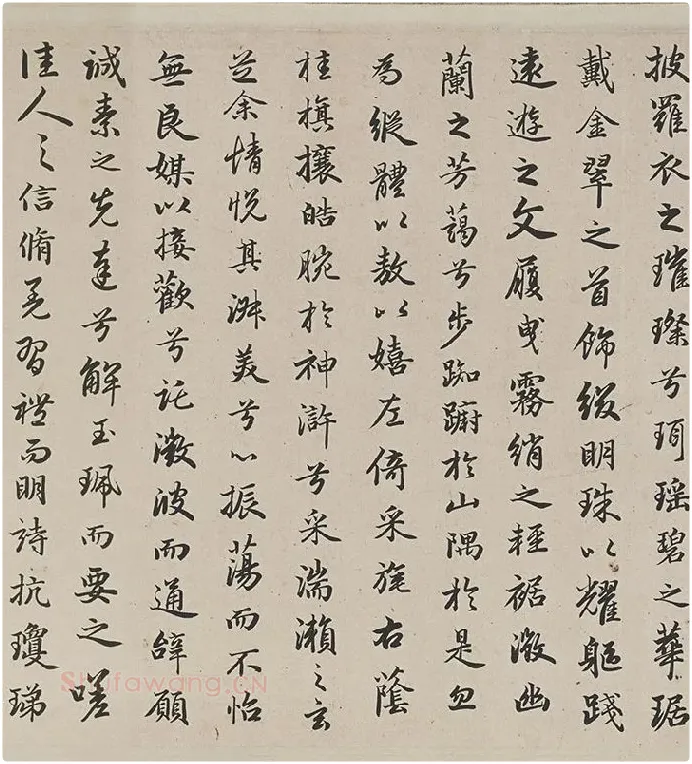 披羅衣之璀璨兮珥瑶碧之華琚
戴金翠之首飾綴明珠以耀軀踐
遠遊之文履曳霧綃之輕裾微幽
蘭之芳藹兮步踟躕於山隅於是忽
為縱體以敖以嬉左倚采旄右蔭
桂旗攘皓腕於神滸兮采湍瀨之玄
芝余情悅其淑美兮心振蕩而不怡
無良媒以接歡兮託微波而通辭願
誠素之先達兮解玉珮而要之嗟
佳人之信脩羌習禮而明詩抗瓊珶
Shufawang.CN